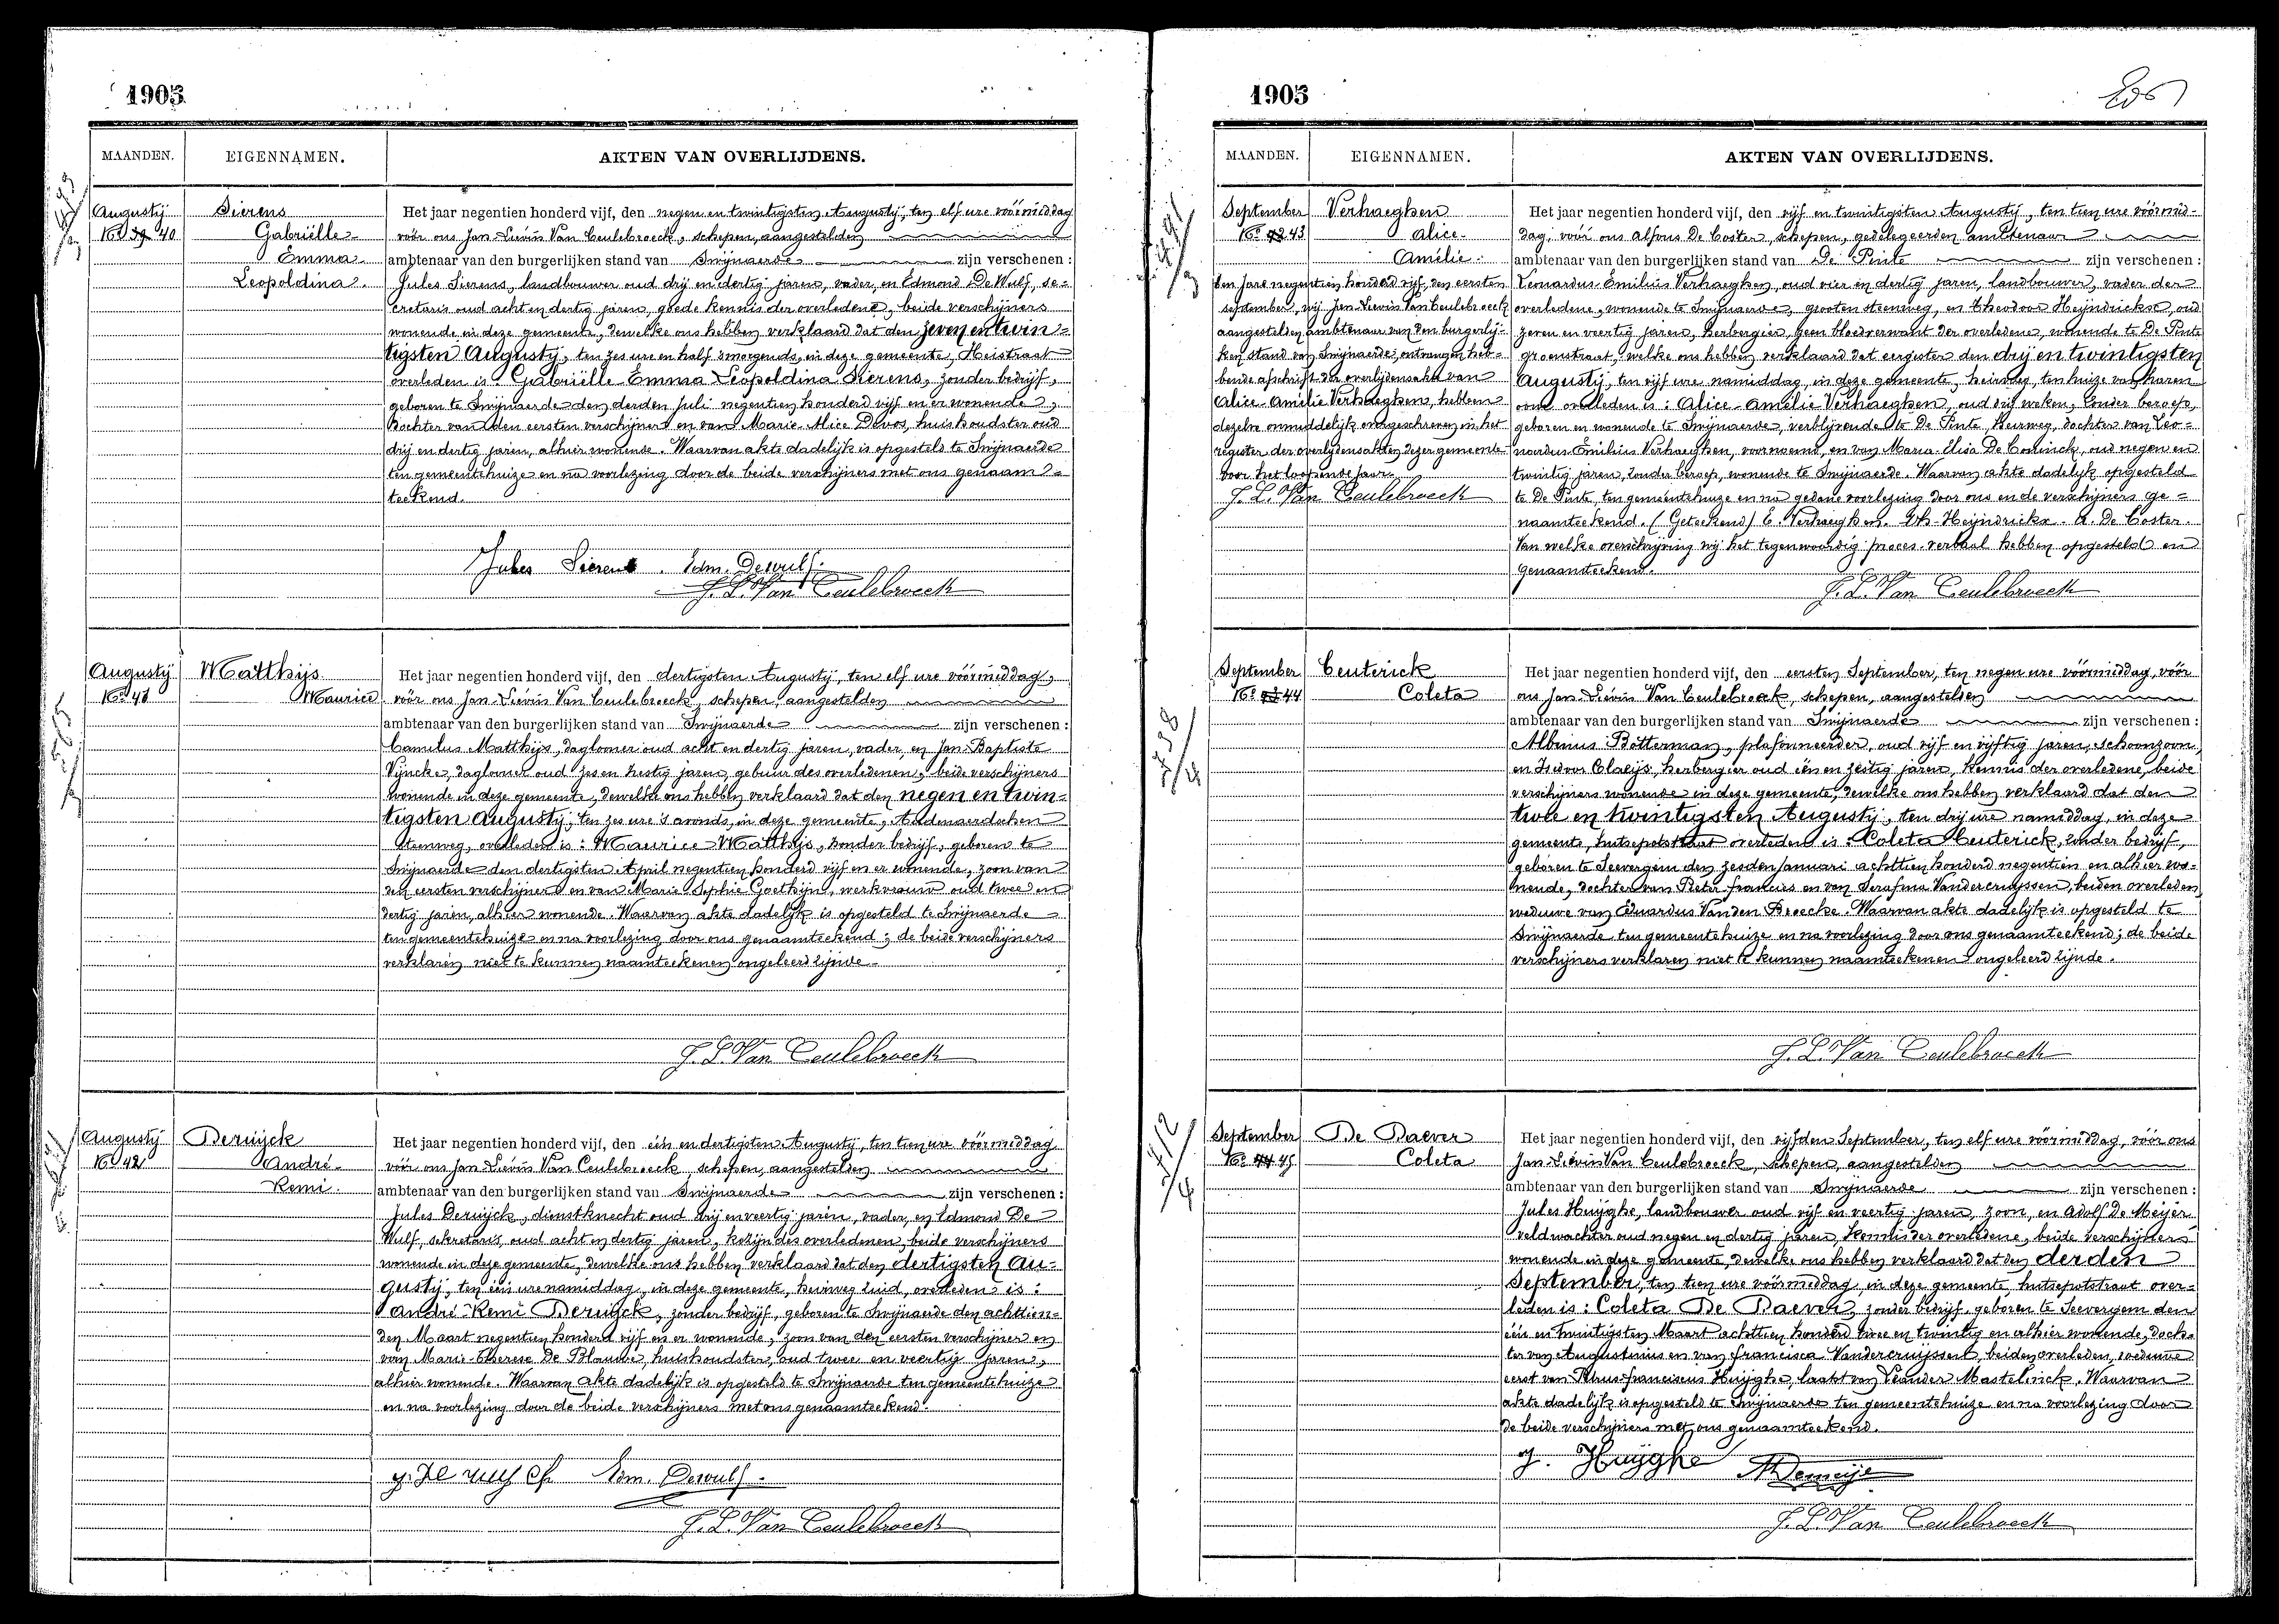 1905
MAANDEN. EIGENNAMEN. AKTEN VAN OVERLIJDENS.
Augustij
No 39 40
Sierens
Gabriëlle
Emma
Leopoldina.
Het jaar negentien honderd vijf, den negen en twintigsten Augustij, ten elf ure vóórmiddag
vóór ons Jan Lievin Van Ceulebroeck, schepen, aangestelden
ambtenaar van den burgerlijken stand van Swijnaerde zijn verschenen :
Jules Sierens, landbouwer oud drij en dertig jaren, vader, en Edmond De Wulf, se-
cretaris oud acht en dertig jaren, goede kennis der overledene, beide verschijners
wonende in deze gemeente, dewelke ons hebben verklaard dat den zeven en twin-
tigsten Augustij, ten zes ure en half smorgends, in deze gemeente, Heistraat
overleden is : Gabriëlle Emma Leopoldina Sierens, zonder bedrijf,
geboren te Swijnaerde den derden Juli negentien honderd vijf en er wonende,
Dochter van den eersten verschijner en van Marie-Alice Devos, huishoudster oud
drij en dertig jaren, alhier wonende. Waarvan akte dadelijk is opgesteld te Swijnaerde
ten gemeentehuize en na voorlezing door de beide verschijners met ons genaam-
teekend.
Jules Sierens. Edm. Dewulf.
J. L. Van Ceulebroeck
Augustij
No 41
Matthijs
Maurice
Het jaar negentien honderd vijf, den dertigsten Augustij, ten elf ure vóórmiddag,
vóór ons Jan Lievin Van Ceulebroeck, schepen, aangestelden
ambtenaar van den burgerlijken stand van Swijnaerde zijn verschenen :
Camilus Matthijs, daglooner oud acht en dertig jaren, vader, en Jan-Baptiste
Vijncke, daglooner oud zes en zestig jaren, gebuur des overledenen, beide verschijners
wonende in deze gemeente, dewelke ons hebben verklaard dat den negen en twin-
tigsten Augustij, ten zes ure 's avonds, in deze gemeente, Audenaerdschen
Steenweg, overleden is : Maurice Matthijs, zonder bedrijf, geboren te
Swijnaerde den dertigsten April negentien honderd vijf en er wonende, zoon van
den eersten verschijner en van Marie Sophie Goethijn, werkvrouw oud twee en
dertig jaren, alhier wonende. Waarvan akte dadelijk is opgesteld te Swijnaerde
ten gemeentehuize en na voorlezing door ons genaamteekend ; de beide verschijners
verklaren niet te kunnen naamteekenen ongeleerd zijnde.
J. L. Van Ceulebroeck
Augustij
No 42
Deruijck
André
Remi.
Het jaar negentien honderd vijf, den één en dertigsten Augustij, ten tien ure vóórmiddag
vóór ons Jan Lievin Van Ceulebroeck, schepen, aangestelden
ambtenaar van den burgerlijken stand van Swijnaerde zijn verschenen :
Jules Deruijck, dienstknecht oud drij en veertig jaren, vader, en Edmond De
Wulf, sekretaris, oud acht en dertig jaren, kozijn des overledenen, beide verschijners
wonende in deze gemeente, dewelke ons hebben verklaard dat den dertigsten Au-
gustij, ten één ure namiddag, in deze gemeente, heirweg zuid, overleden is :
André-Remi Deruijck, zonder bedrijf, geboren te Swijnaerde den achttien-
den Maart negentien honderd vijf en er wonende, zoon van den eersten verschijner en
van Marie-Therese De Blauwe, huishoudster, oud twee en veertig jaren,
alhier wonende. Waarvan akte dadelijk is opgesteld te Swijnaerde ten gemeentehuize
en na voorlezing door de beide verschijners met ons genaamteekend.
Edm. Dewulf.
J. L. Van Ceulebroeck
1905
MAANDEN. EIGENNAMEN. AKTEN VAN OVERLIJDENS.
September
No 42 43
Verhaeghen
Alice
Amélie.
Den Jare negentien honderd vijf, den eersten
september, wij Jan-Lievin Van Ceulebroeck
aangestelden ambtenaar van den burgerlij-
ken stand van Swijnaerde, ontvangen heb-
bende afschrift der overlijdensakte van
Alice-Amélie Verhaeghen, hebben
dezelve onmiddelijk overgeschreven in het
register der overlijdensakten dezer gemeente
voor het loopende jaar.
J. L. Van Ceulebroeck
Het jaar negentien honderd vijf, den vijf en twintigsten Augustij, ten tien ure vóórmid-
dag, vóór ons Alfons De Coster, schepen, gedelegeerden ambtenaar
ambtenaar van den burgerlijken stand van De Pinte zijn verschenen :
Leonardus-Emilius Verhaeghen, oud vier en dertig jaren, landbouwer, vader der
overledene, wonende te Swijnaerde, grooten steenweg, en Theodoor Heijndrickx, oud
zeven en veertig jaren, herbergier, geen bloedverwant der overledene, wonende te De Pinte
groenstraat, welke ons hebben verklaard dat eergister den drij en twintigsten
Augustij, ten vijf ure namiddag, in deze gemeente, heirweg, ten huize van haren
oom overleden is : Alice-Amélie Verhaeghen, oud drij weken, zonder beroep,
geboren en wonende te Swijnaerde, verblijvende te De Pinte, Heirweg, dochter van Leo-
nardus-Emilius Verhaeghen, voornoemd, en van Maria Elisa De Coninck, oud negen en
twintig jaren, zonder beroep, wonende te Swijnaerde. Waarvan akte dadelijk opgesteld
te De Pinte, ten gemeentehuize en na gedane voorlezing door ons en de verschijners ge-
naamteekend. (Geteekend) E. Verhaeghen. Th. Heijndrickx. A. De Coster.
Van welke overschrijving wij het tegenwoordig proces-verbaal hebben opgesteld en
genaamteekend.
J. L. Van Ceulebroeck
September
No 43 44
Ceuterick
Coleta
Het jaar negentien honderd vijf, den eersten September, ten negen ure vóórmiddag, vóór
ons Jan-Lievin Van Ceulebroeck, schepen, aangestelden
ambtenaar van den burgerlijken stand van Swijnaerde zijn verschenen :
Albinus Botterman, plafonneerder, oud vijf en vijftig jaren, schoonzoon,
en Isidoor Claeijs, herbergier oud één en zestig jaren, kennis der overledene, beide
verschijners wonende in deze gemeente, dewelke ons hebben verklaard dat den
twee en twintigsten Augustij, ten drij ure namiddag, in deze
gemeente, hutsepotstraat overleden is : Coleta Ceuterick, zonder bedrijf,
geboren te Seevergem den zesden Januari achttien honderd negentien en alhier wo-
nende, dochter van Pieter francies en van Serafina Vandercruyssen, beiden overleden,
weduwe van Eduardus Van den Broecke. Waarvan akte dadelijk is opgesteld te
Swijnaerde ten gemeentehuize en na voorlezing door ons genaamteekend ; de beide
verschijners verklaren niet te kunnen naamteekenen ongeleerd zijnde.
J. L. Van Ceulebroeck
September
No 44 45
De Baever
Coleta
Het jaar negentien honderd vijf, den vijfden September, ten elf ure vóórmiddag, vóór ons
Jan-Lievin Van Ceulebroeck, schepen, aangestelden
ambtenaar van den burgerlijken stand van Swijnaerde zijn verschenen :
Jules Huijghe, landbouwer oud vijf en veertig jaren, zoon, en Adolf De Meijer
veldwachter oud negen en dertig jaren, kennis der overledene, beide verschijners
wonende in deze gemeente, dewelke ons hebben verklaard dat den derden
September, ten tien ure vóórmiddag, in deze gemeente, hutsepotstraat over-
leden is : Coleta De Baever, zonder bedrijf, geboren te Seevergem den
één en twintigsten Maart achttien honderd twee en twintig en alhier wonende, doch-
ter van Augustinius en van francisca Vandercruijssen, beiden overleden, weduwe
eerst van franciscus Huijghe, laatst van Leander Mastelinck. Waarvan
akte dadelijk is opgesteld te Swijnaerde ten gemeentehuize en na voorlezing door
de beide verschijners met ons genaamteekend.
J. Huijghe ADemeije
J. L. Van Ceulebroeck